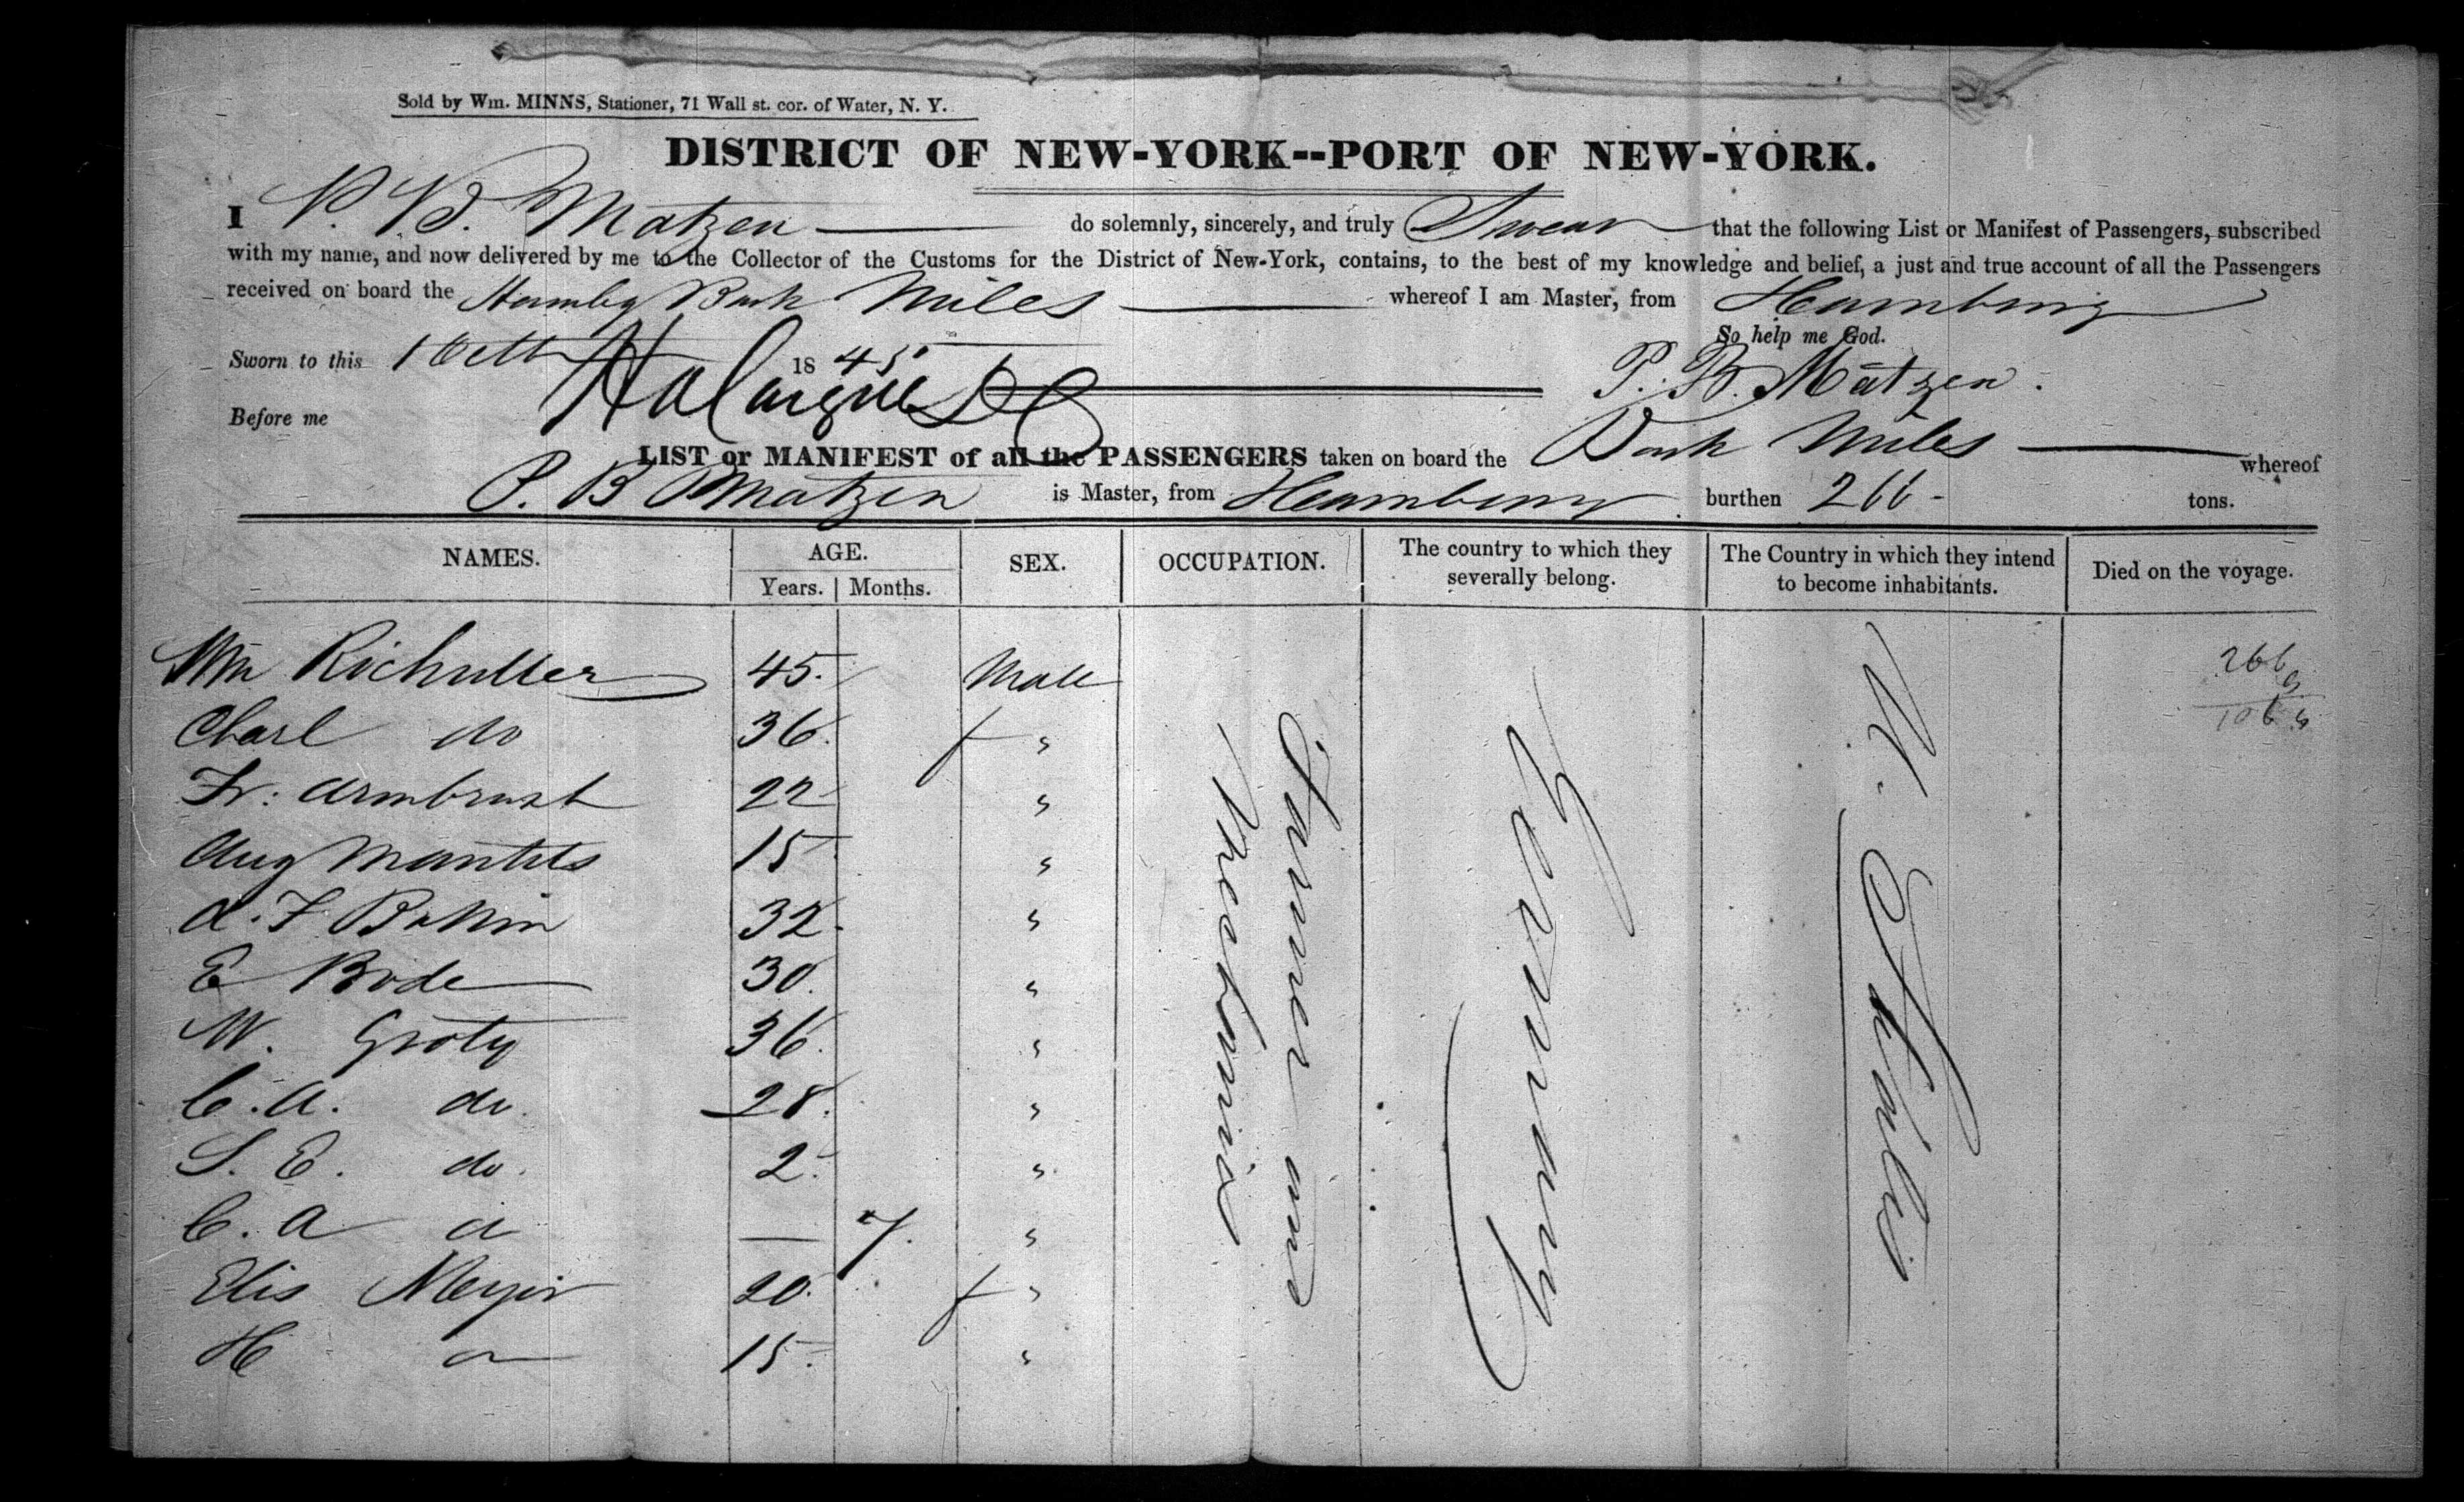 Sold by Wm. MINNS, Stationer, 71 Wall st. cor. of Water, N. Y.
DISTRICT OF NEW-YORK--PORT OF NEW-YORK.
I P. B. Matzen do solemnly, sincerely, and truly Swear that the following List or Manifest of Passengers, subscribed
with my name, and now delivered by me to the Collector of the Customs for the District of New-York, contains, to the best of my knowledge and belief, a just and true account of all the Passengers
received on board the Hambg Bark Miles whereof I am Master, from Hamburg
So help me God.
Sworn to this 1845 P. B. Matzen.
Before me
LIST or MANIFEST of all the PASSENGERS taken on board the Bark Miles whereof
P. B Matzen is Master, from Hamburg burthen 266 tons.
NAMES. AGE. SEX. OCCUPATION. The country to which they severally belong. The Country in which they intend to become inhabitants. Died on the voyage.
Years. Months.
Wm 45. Male 266
Charl do 36. f "
Fr: Armbrust 22 "
Aug 15 "
A. F 32. "
E Bode 30. "
W. 36. "
C. A. do. 28. "
S. E. do. 2. "
C. A d — 7. "
Elis Meyer 20. f "
H 15. "
Farmers and
Workmen
Germany
U. States